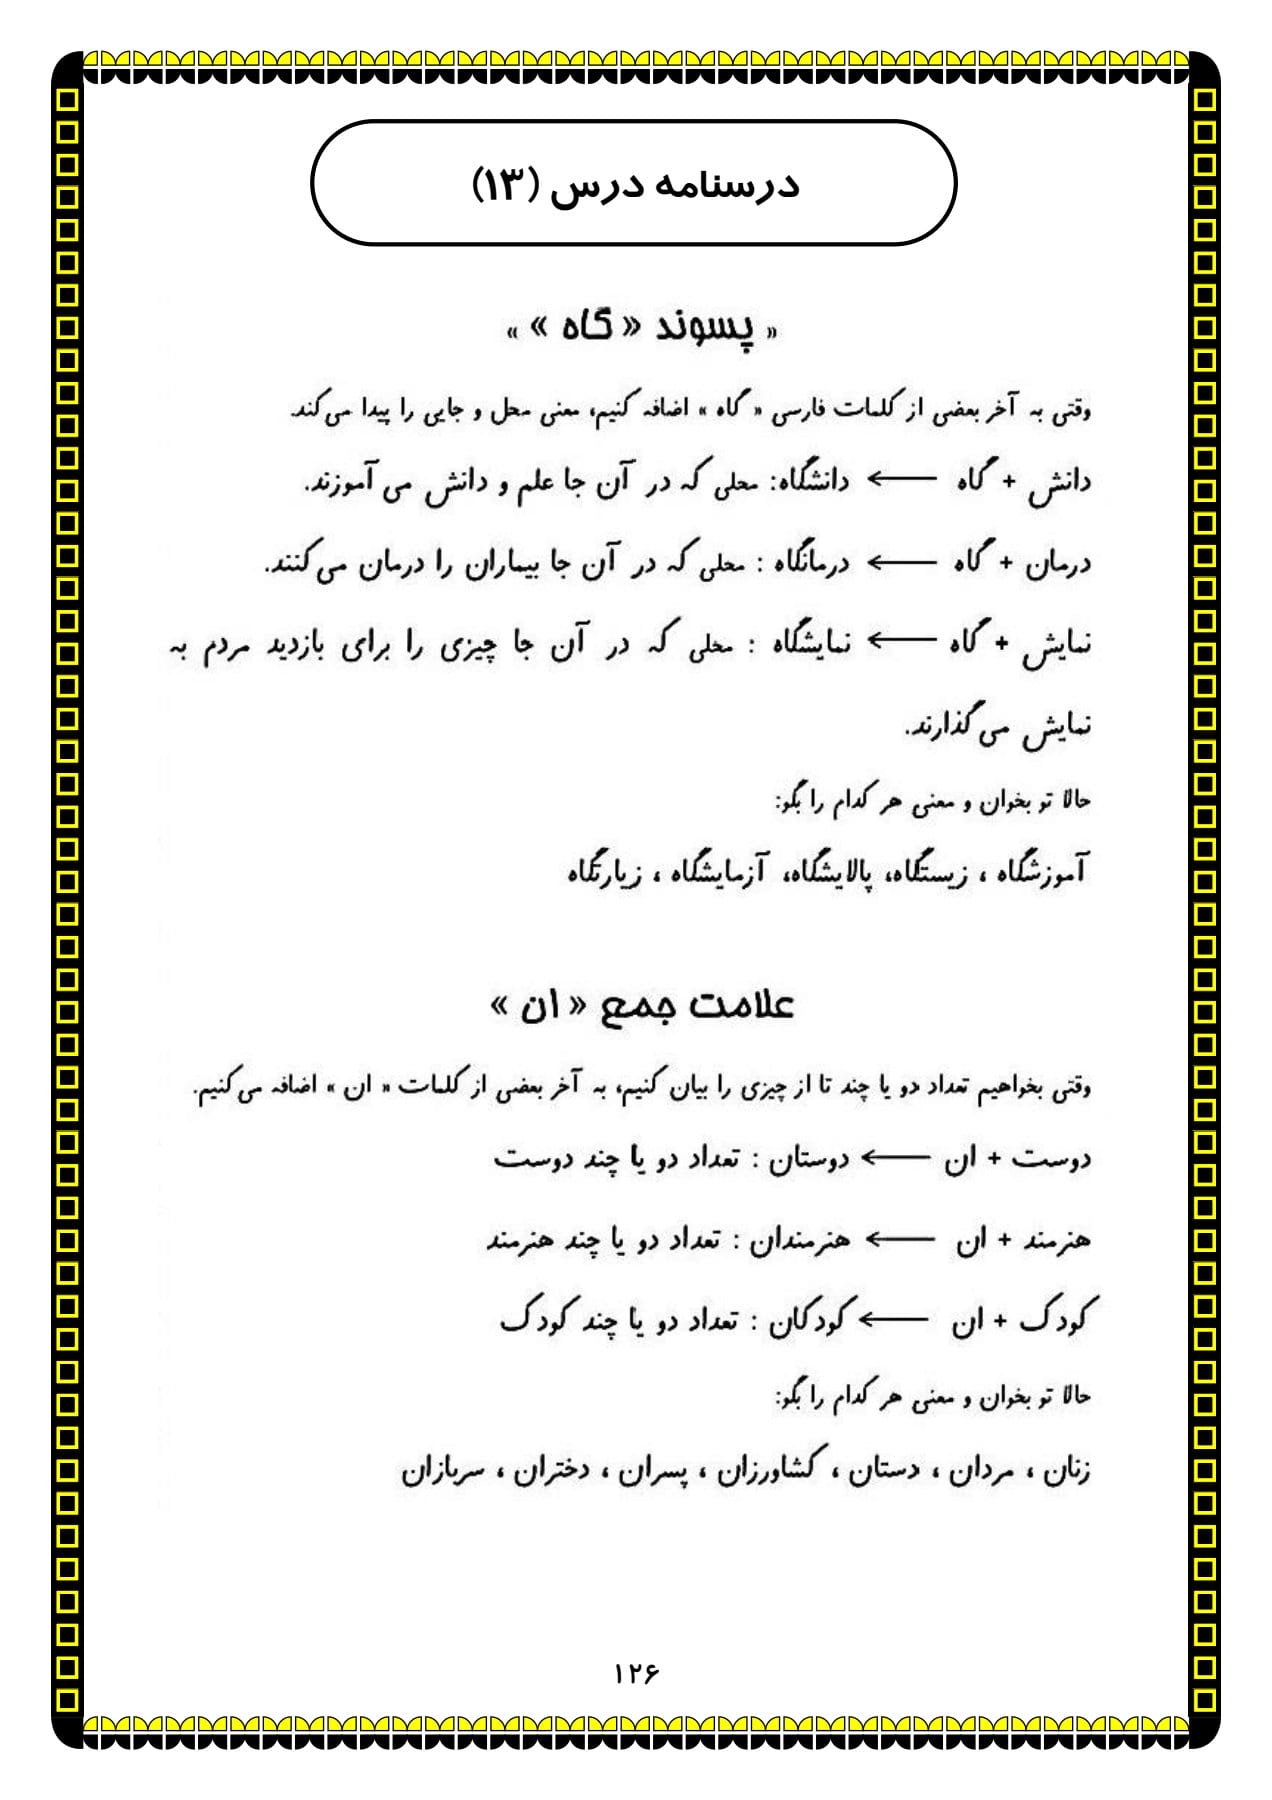 درسنامه درس (۱۳)
« پسوند « گاه » »
وقتی به آخر بعضی از کلمات فارسی « گاه » اضافه کنیم، معنی محل و جایی را پیدا می‌کند.
دانش + گاه ← دانشگاه: محلی که در آن جا علم و دانش می آموزند.
درمان + گاه ← درمانگاه : محلی که در آن جا بیماران را درمان می‌کنند.
نمایش + گاه ← نمایشگاه : محلی که در آن جا چیزی را برای بازدید مردم به
نمایش می‌گذارند.
حالا تو بخوان و معنی هر کدام را بگو:
آموزشگاه ، زیستگاه، پالایشگاه، آزمایشگاه ، زیارتگاه
علامت جمع « ان »
وقتی بخواهیم تعداد دو یا چند تا از چیزی را بیان کنیم، به آخر بعضی از کلمات « ان » اضافه می‌کنیم.
دوست + ان ← دوستان : تعداد دو یا چند دوست
هنرمند + ان ← هنرمندان : تعداد دو یا چند هنرمند
کودک + ان ← کودکان : تعداد دو یا چند کودک
حالا تو بخوان و معنی هر کدام را بگو:
زنان ، مردان ، دستان ، کشاورزان ، پسران ، دختران ، سربازان
۱۲۶